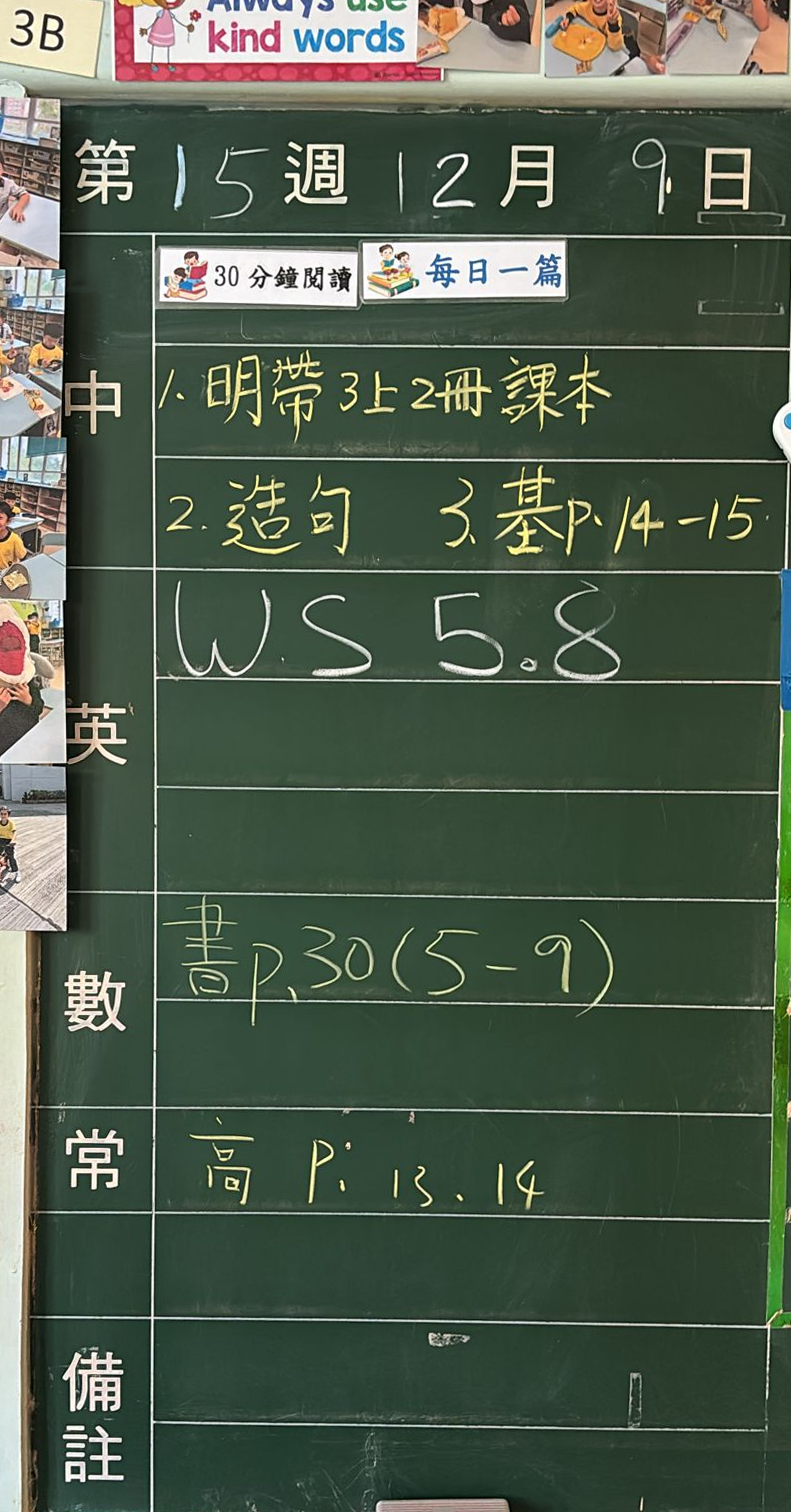 3B
Always use
kind words
第 15 週 12 月 9 日
30 分鐘閱讀 每日一篇
中
1. 明帶3上2冊課本
2. 造句 3. 基P. 14-15
英
W.S 5.8
數
書p.30(5-9)
常
高 P: 13、14
備註